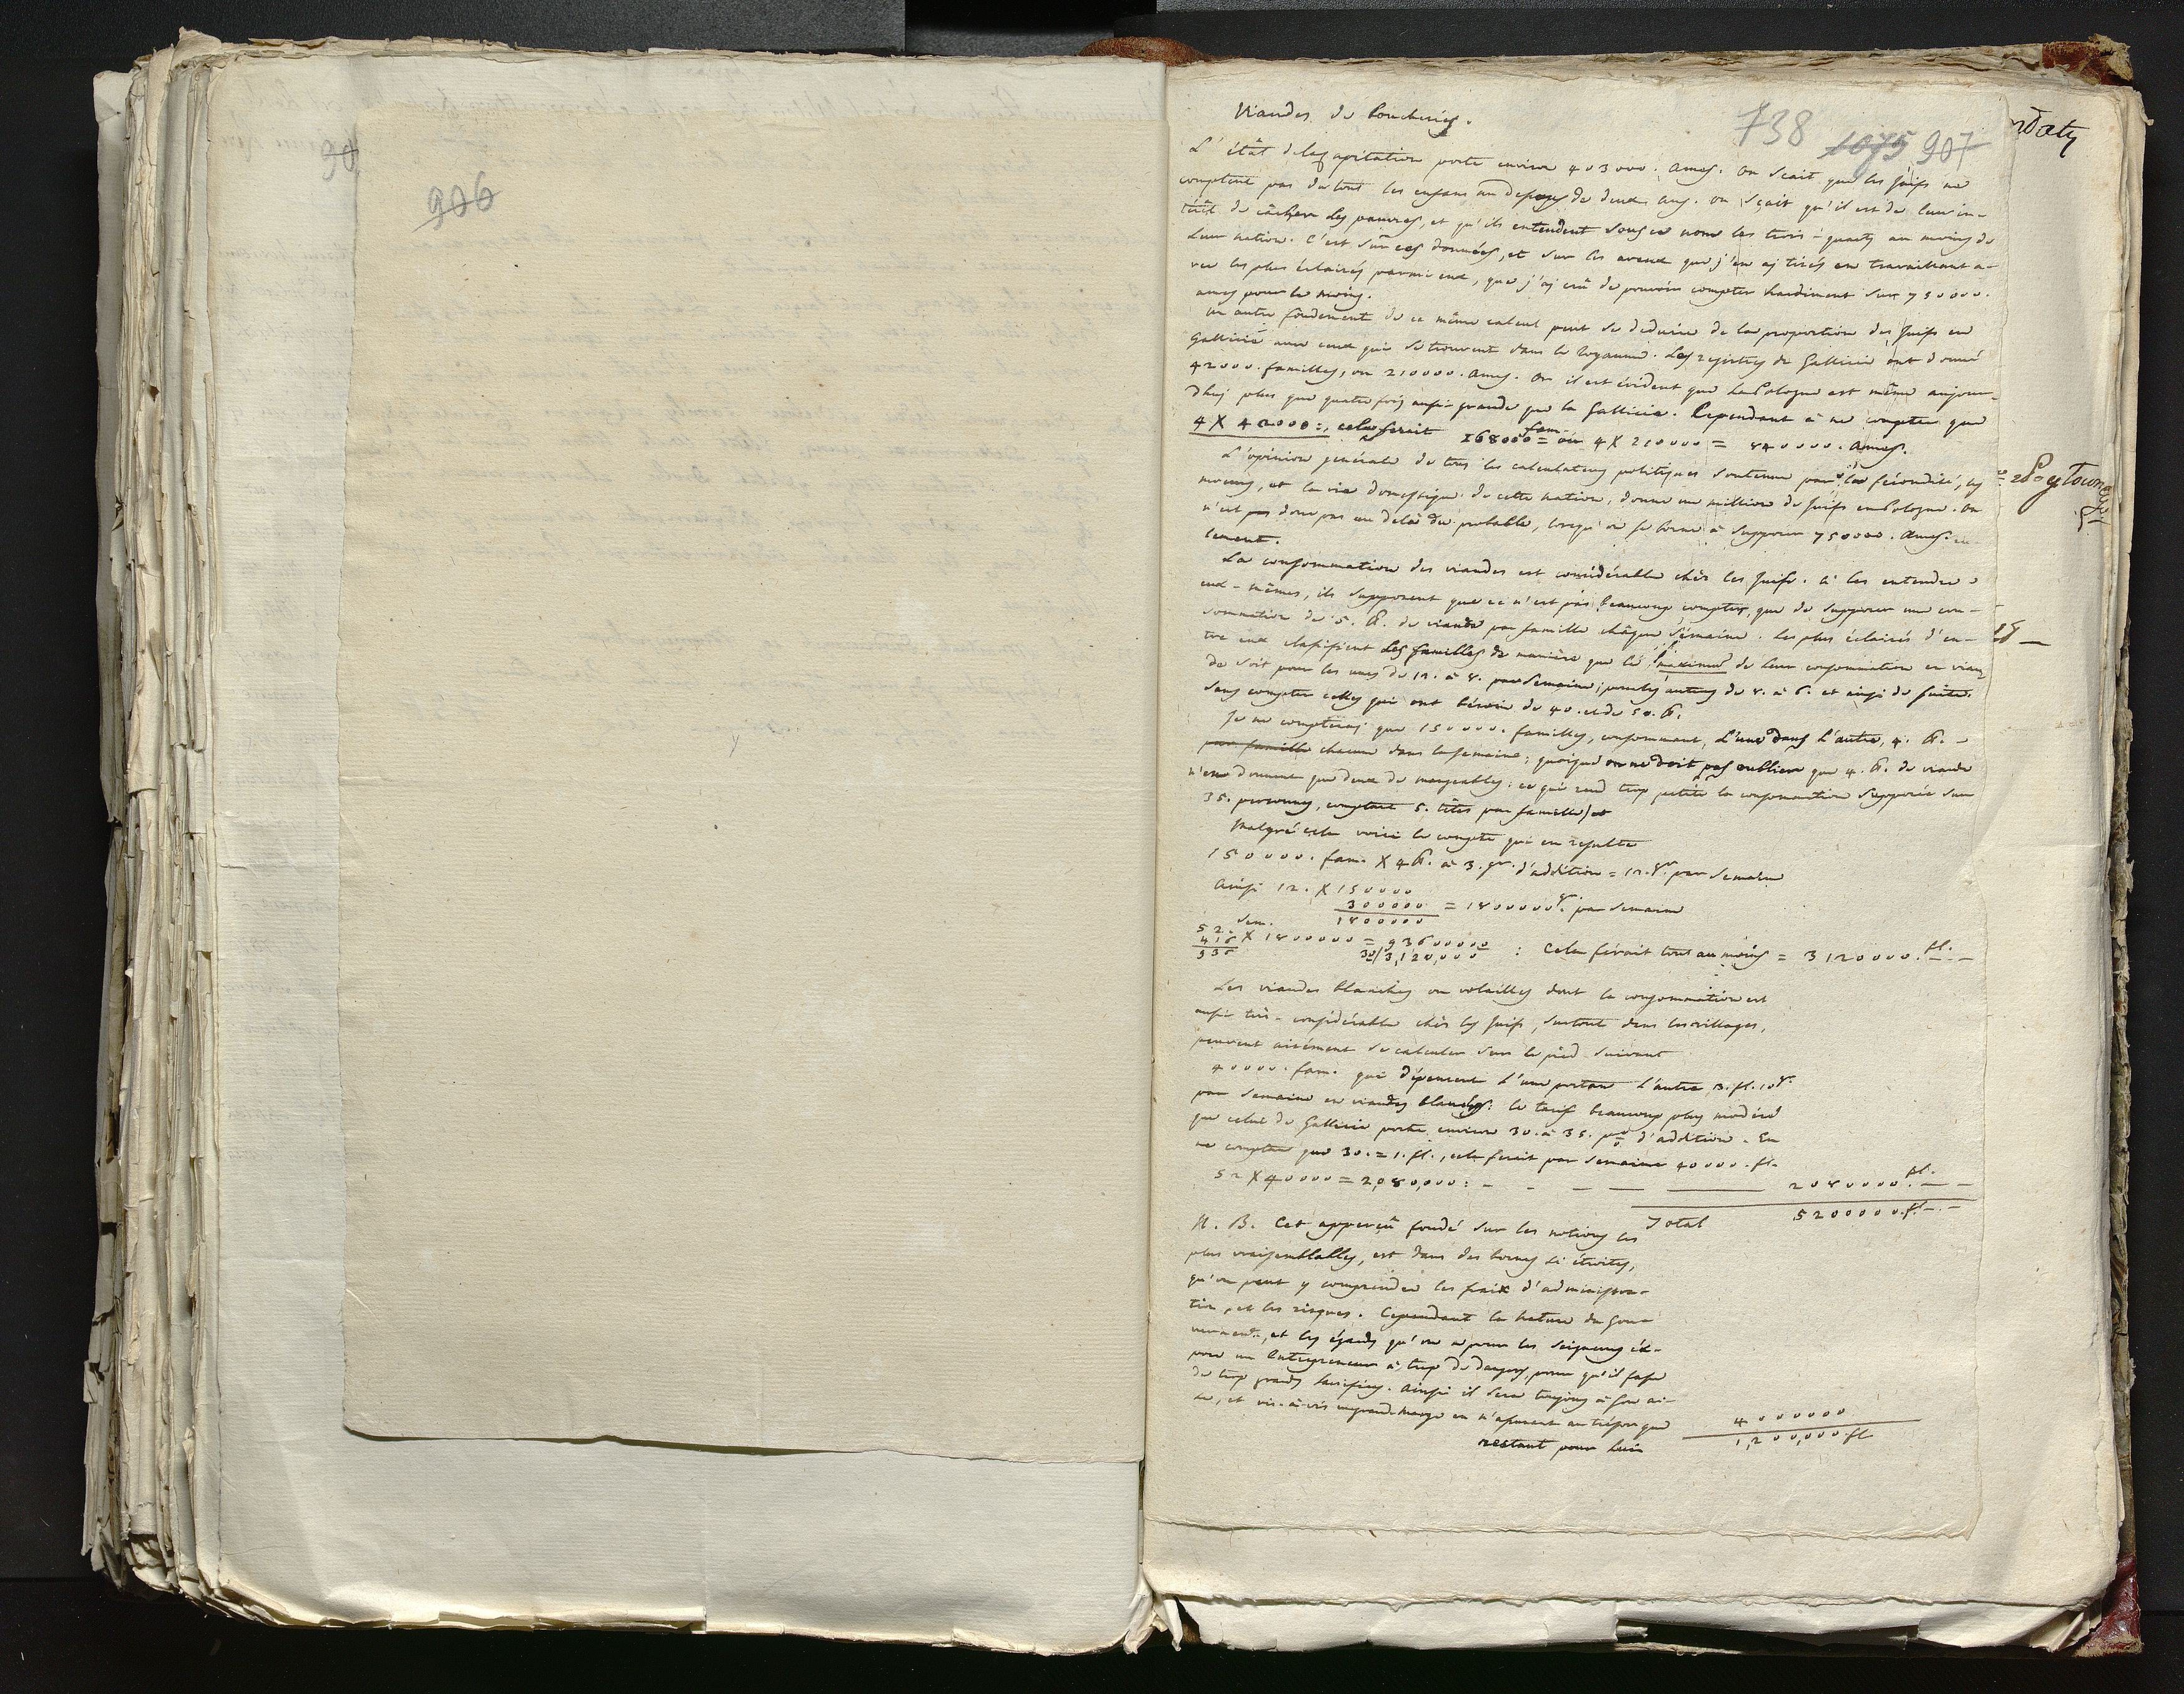 90
906
738 1075 907
Viandes de boucheries.
L'êtât de la Capitation porte environ 403000. ames. On scait que les Juifs ne
comptent pas du tout les enfans au dessous de deux ans. on sçait qu'il est de leur in-
térêt de câcher les pauvres, et qu'ils entendent sous ce nom les trois-quarts au moins de
leur nation. C'est sur ces données, et sur les aveux que j'en ai tirés en travaillant a-
vec les plus éclairés parmi eux, que j'ai crû de pouvoir compter hardiment sur 750000.
ames pour le moins.
Un autre fondement de ce même calcul peut se déduire de la proportion des Juifs en
Gallicie avec ceux qui se trouvent dans le Royaume. Les registres de Gallicie ont donné
42000. familles, ou 210000. ames. Or il est évident que la Pologne est même aujour-
dhui plus que quatre fois aussi grande que la Gallicie. Cependant à ne compter que
4 X 42000:, cela feroit 168000 fam. = ou 4 X 210000 = 840000. ames.
L'opinion générale de tous les calculateurs politiques soutenue par la fécondité, les
moeurs, et la vie domestique de cette nation, donne un million de Juifs en Pologne. On
n'est donc pas au delà du probable, lorsqu'on se borne à supposer 750000. ames seu-
lement.
La consommation des viandes est considérable chés les Juifs. à les entendre
eux-mêmes, ils supposent que ce n'est pas beaucoup compter, que de supposer une con-
sommation de 5. lb. de viande par famille châque sémaine. Les plus éclairés d'en-
tre eux classifient les familles de manière que le maximum de leur consommation en vian-
de soit pour les unes de 12. à 8. par semaine; pour les autres de 8. à 6. et ainsi de suite.
sans compter celles qui ont bésoin de 40. et de 50. lb.
Je ne compterai que 150000. familles, consommant, l'une dans l'autre, 4. lb. -
par famille chacune dans la semaine; quoique on ne doit pas oublier que 4. lb. de viande
n'en donnent que deux de mangeables: ce qui rend trop petite la consommation supposée sur
35. personnes, comptant 5. têtes par famille) et
Malgré cela voici le compte qui en resulte
150000. fam. X 4 lb. à 3. gr. d'addition = 12. gr. par semaine
Ainsi 12. X 150000
300000 = 1800000 gr. par semaine
1800000
52. sem. X 1800000 = 93600000
416
936
30/3,120,000 : Cela ferait tout au moins = 3120000. fl. - -
Les viandes blanches ou volailles dont la consommation est
aussi très-considérable chés les Juifs, surtout dans les villages,
peuvent aisément se calculer sur le pied suivant
40000. fam. qui dépensent l'une portant l'autre 3. fl. 10 gr.
par semaine en viandes blanches: le tarif beaucoup plus modéré
que celui de Gallicie porte environ 30. à 35. p% d'addition. En
ne comptant que 30. = 1. fl., cela feroit par semaine 40000. fl.
52 X 40000 = 2,080,000: - - - 2080000. fl. - -
Total 5200000. fl. - -
N. B. Cet apperçû fondé sur les notions les
plus vraisemblables, est dans des bornes si étroites,
qu'on peut y comprendre les fraix d'administra-
tion, et les risques. Cependant la nature du Gou-
vernemt., et les égards qu'on a pour les Seigneurs ex-
pose un Entrepreneur à trop de dangers, pour qu'il fasse
de trop grands sacrifices. Ainsi il sera toujours à son ai-
se, et vis-à-vis un grand marge en n'assurant au trésor que 4000000
restant pour lui 1,200,000 fl.